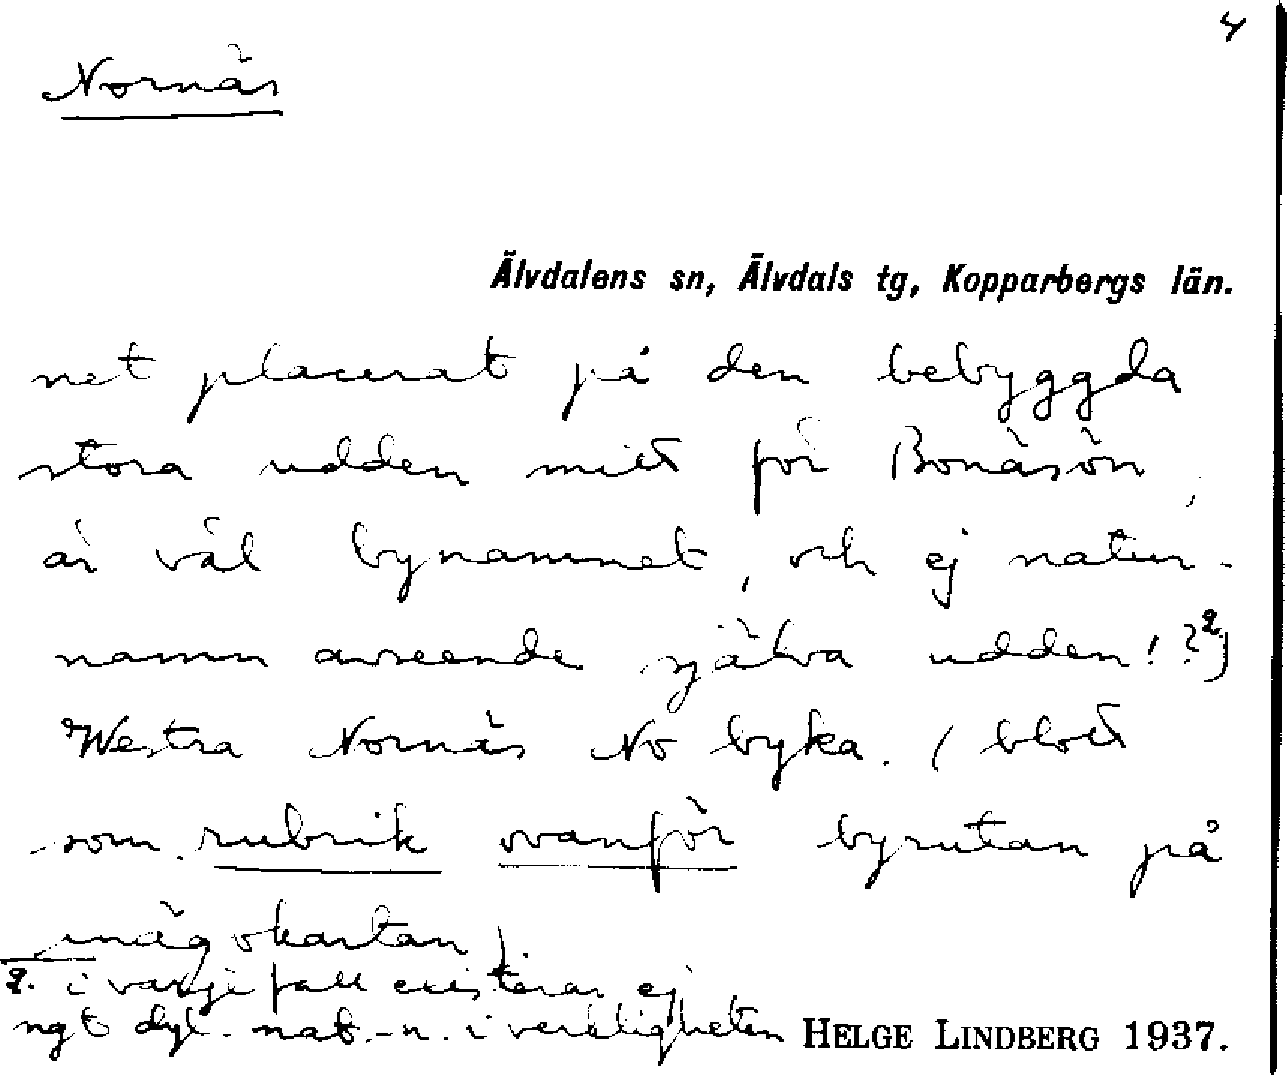 4
Nornäs
Älvdalens sn, Älvdals tg, Kopparbergs län.
net placerat på den bebyggda
stora udden mitt för Bonäsön,
är väl bynamnet, och ej natur-
namn avseende själva udden!?2)
Westra Nornäs No byka. (blott
som rubrik ovanför byrutan på
inägokartan)
2. i varje fall existerar ej
ngt dyl. nat.-n. i verkligheten
HELGE LINDBERG 1937.